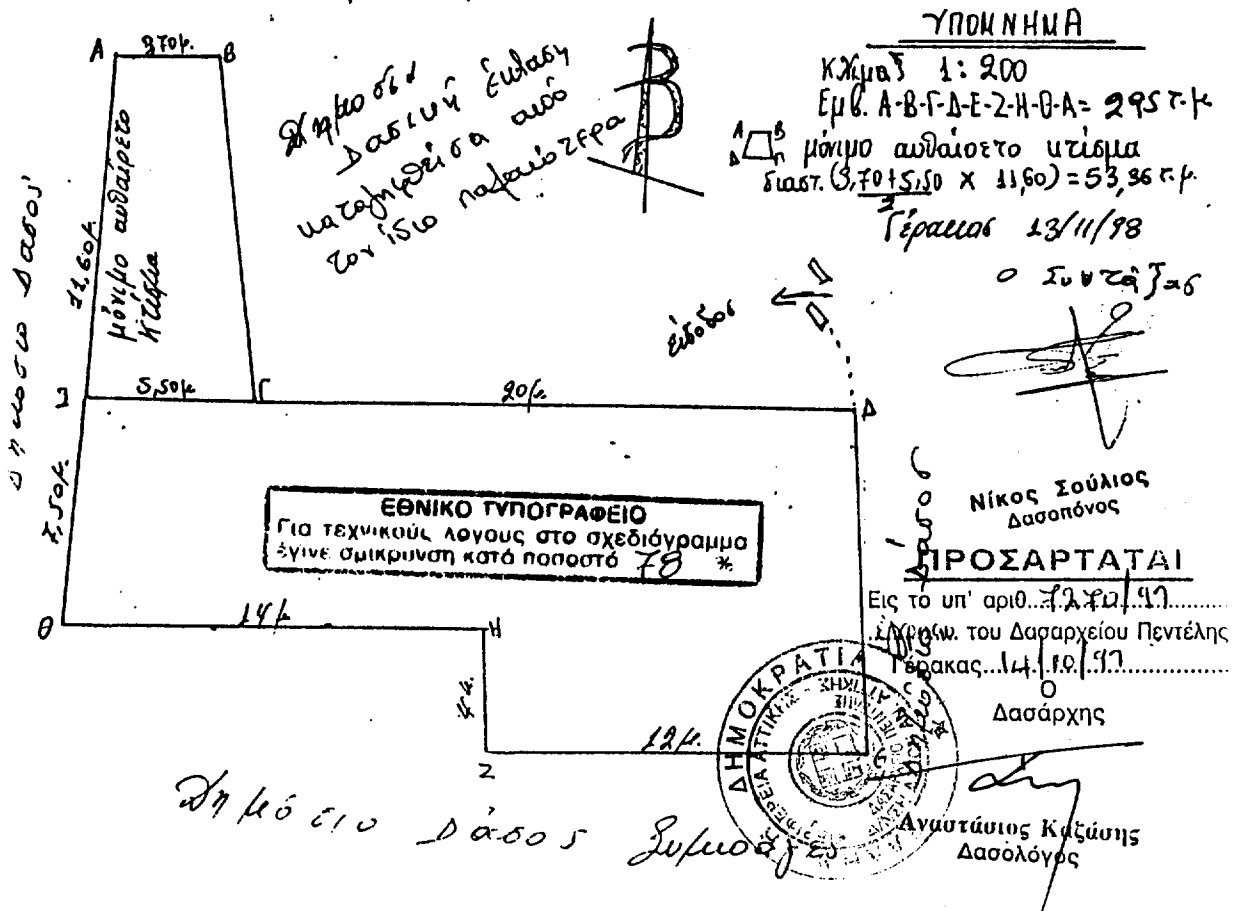 ΥΠΟΜΝΗΜΑ
Κλίμαξ 1:200
Εμβ. Α-Β-Γ-Δ-Ε-Ζ-Η-Θ-Α= 295 τ.μ
Α Β Δ Π μόνιμο αυθαίρετο κτίσμα
διαστ. (3,70+5,50 X 11,60) = 53,36 τ.μ.
2
Γέρακας 13/11/98
Ο Συντάξας
Νίκος Σούλιος
Δασοπόνος
ΠΡΟΣΑΡΤΑΤΑΙ
Εις το υπ' αριθ. 7270/97
του Δασαρχείου Πεντέλης
Γέρακας 14/10/97
Ο
Δασάρχης
Αναστάσιος Καζάσης
Δασολόγος
Α 3,70μ. Β
Δημόσια
Δασική έκταση
καταληφθείσα από
τον ίδιο παλαιότερα
Β
Δημόσιο Δάσος
11,60μ.
μόνιμο αυθαίρετο
κτίσμα
είσοδος
Ι 5,50μ Γ 20μ. Δ
7,50μ.
ΕΘΝΙΚΟ ΤΥΠΟΓΡΑΦΕΙΟ
Για τεχνικούς λόγους στο σχεδιάγραμμα
έγινε σμίκρυνση κατά ποσοστό 78 %
Δημόσιο Δάσος
Θ 14μ Η
4μ.
12μ.
Ζ
ΔΗΜΟΚΡΑΤΙΑ
Δημόσιο Δάσος